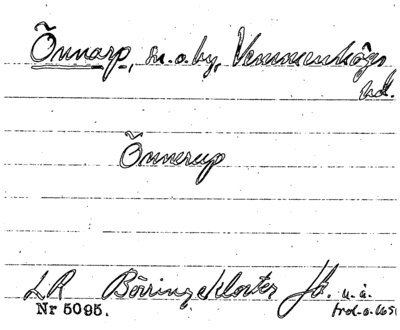 Önnarp, sn.o.by, Vemmenhögs
hd.
Önnerup
LR Börringekloster Jb. u.å.
Nr 5095.